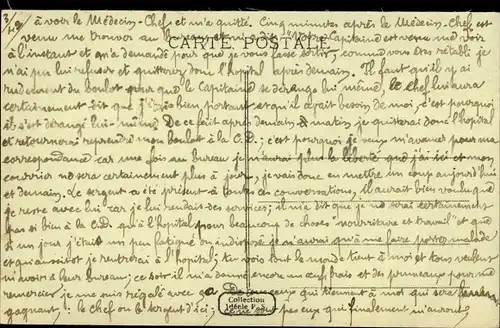 3/49 à voir le Médecin-Chef et m'a quitté. Cinq minutes après le Médecin-Chef est
venu me trouver au bureau et m'a dit "Votre Capitaine est venu me voir
CARTE POSTALE
à l'instant et m'a demandé pour que je vous fasse sortir, comme vous êtes rétabli je
n'ai pu lui refuser et quitterez donc l'hôpital après demain. Il faut qu'il y ai
rudement du boulot pour que le Capitaine se dérange lui même, le chef lui aura
certainement dit que j'étais bien portant et qu'il avait besoin de moi, c'est pourquoi
il s'est dérangé lui-même. De ce fait après demain matin je quitterai donc l'hôpital
et retournerai reprendre mon boulot à la C.D.; c'est pourquoi je veux m'avancer pour ma
correspondance car une fois au bureau je n'aurai plus la liberté que j'ai ici et mon
courrier ne sera certainement plus à jour, je vais donc en mettre un coup aujourd'hui
et demain. Le sergent a été présent à toutes ces conversations, il aurait bien voulu que
je reste avec lui car je lui rendais des services; il m'a dit que je ne serai certainement
pas si bien à la C.D. qu'à l'hôpital pour beaucoup de choses "nourriture et travail" et que
si un jour j'étais un peu fatigué ou indisposé je n'aurai qu'à me faire porter malade
et qu'aussitôt je rentrerai à l'hôpital; tu vois tout le monde tient à moi et tous veulent
m'avoir à leur bureau; ce soir il m'a donné encore un œuf frais et des pruneaux pour me
remercier, je me suis régalé avec ça. De ces deux qui tiennent à moi qui sera
gagnant: le chef ou le sergent d'ici; ce ne sont pas eux qui finalement m'auront
Collection